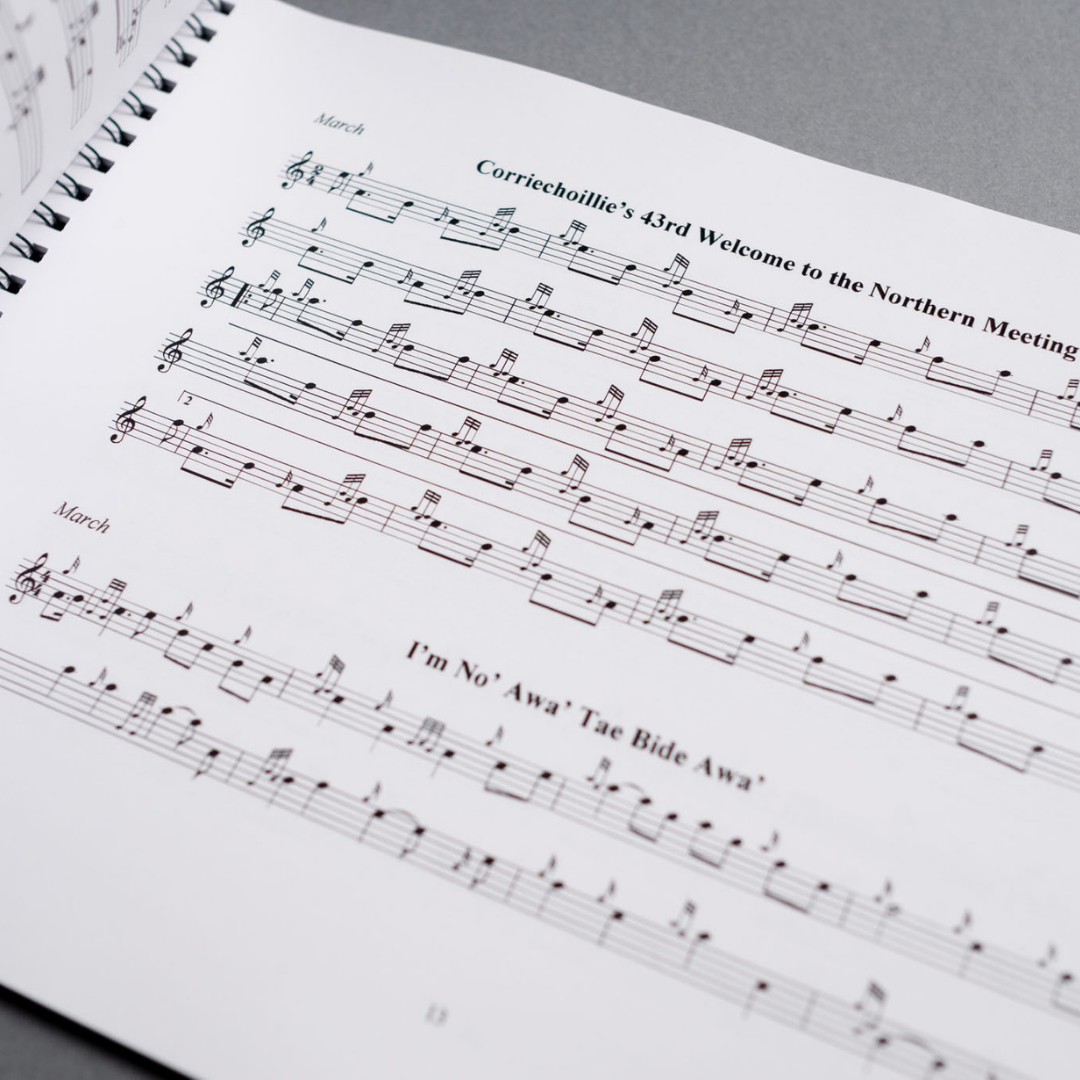 March
Corriechoillie's 43rd Welcome to the Northern Meeting
2
4
2
March
I'm No' Awa' Tae Bide Awa'
4
4